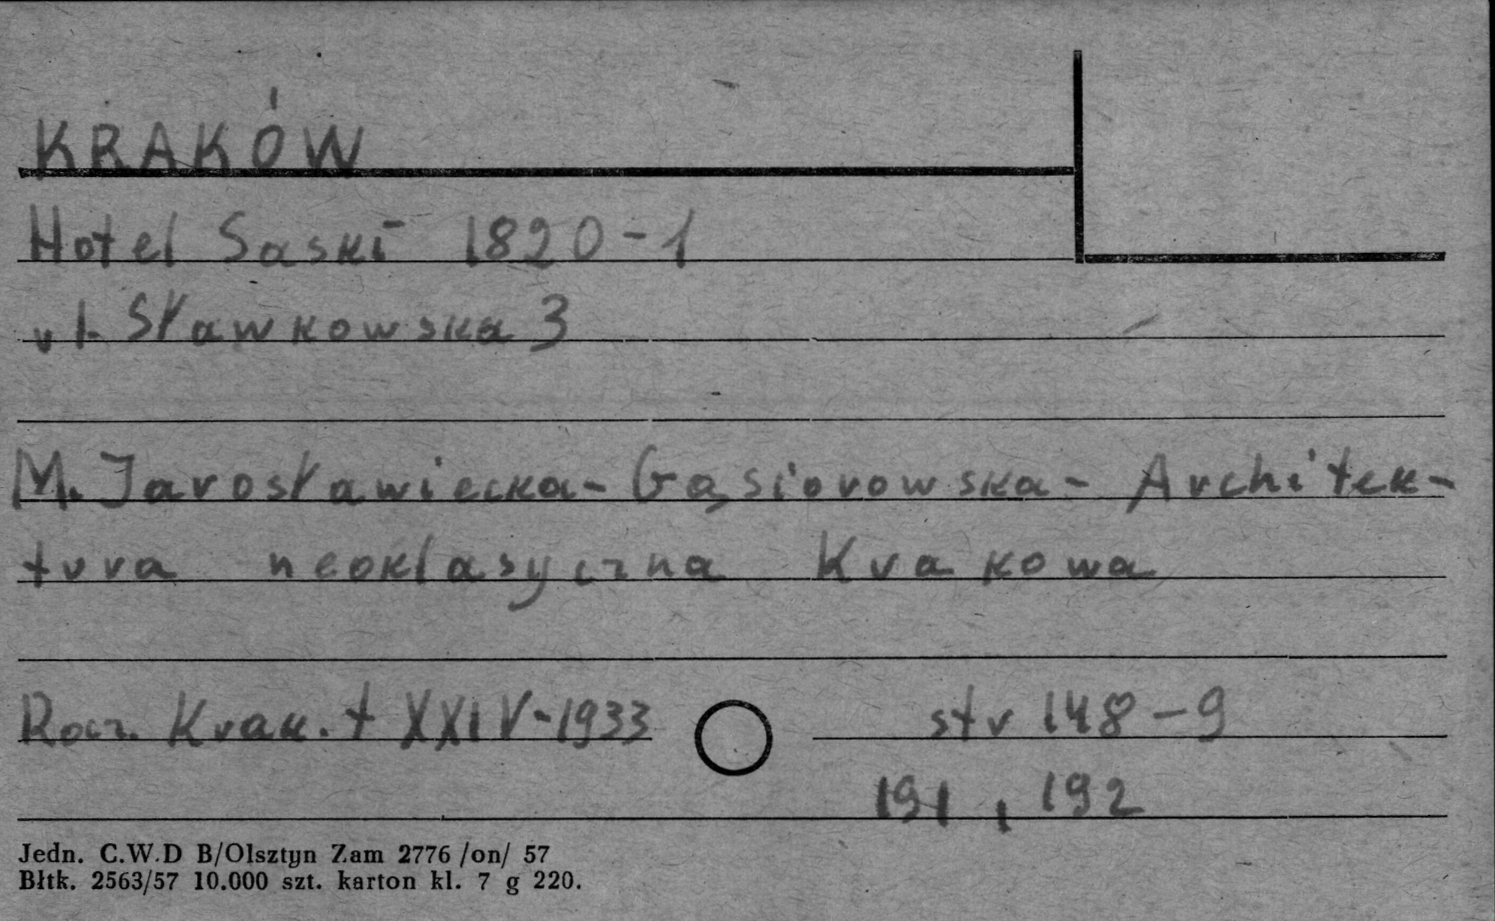 KRAKÓW
Hotel Saski 1820-1
ul. Sławkowska 3
M. Jarosławiecka-Gąsiorowska- Architek-
tura neoklasyczna Krakowa
Rocz. Krak. t XXIV-1933 str 148-9
191, 192
Jedn. C.W.D B/Olsztyn Zam 2776 /on/ 57
Błtk. 2563/57 10.000 szt. karton kl. 7 g 220.